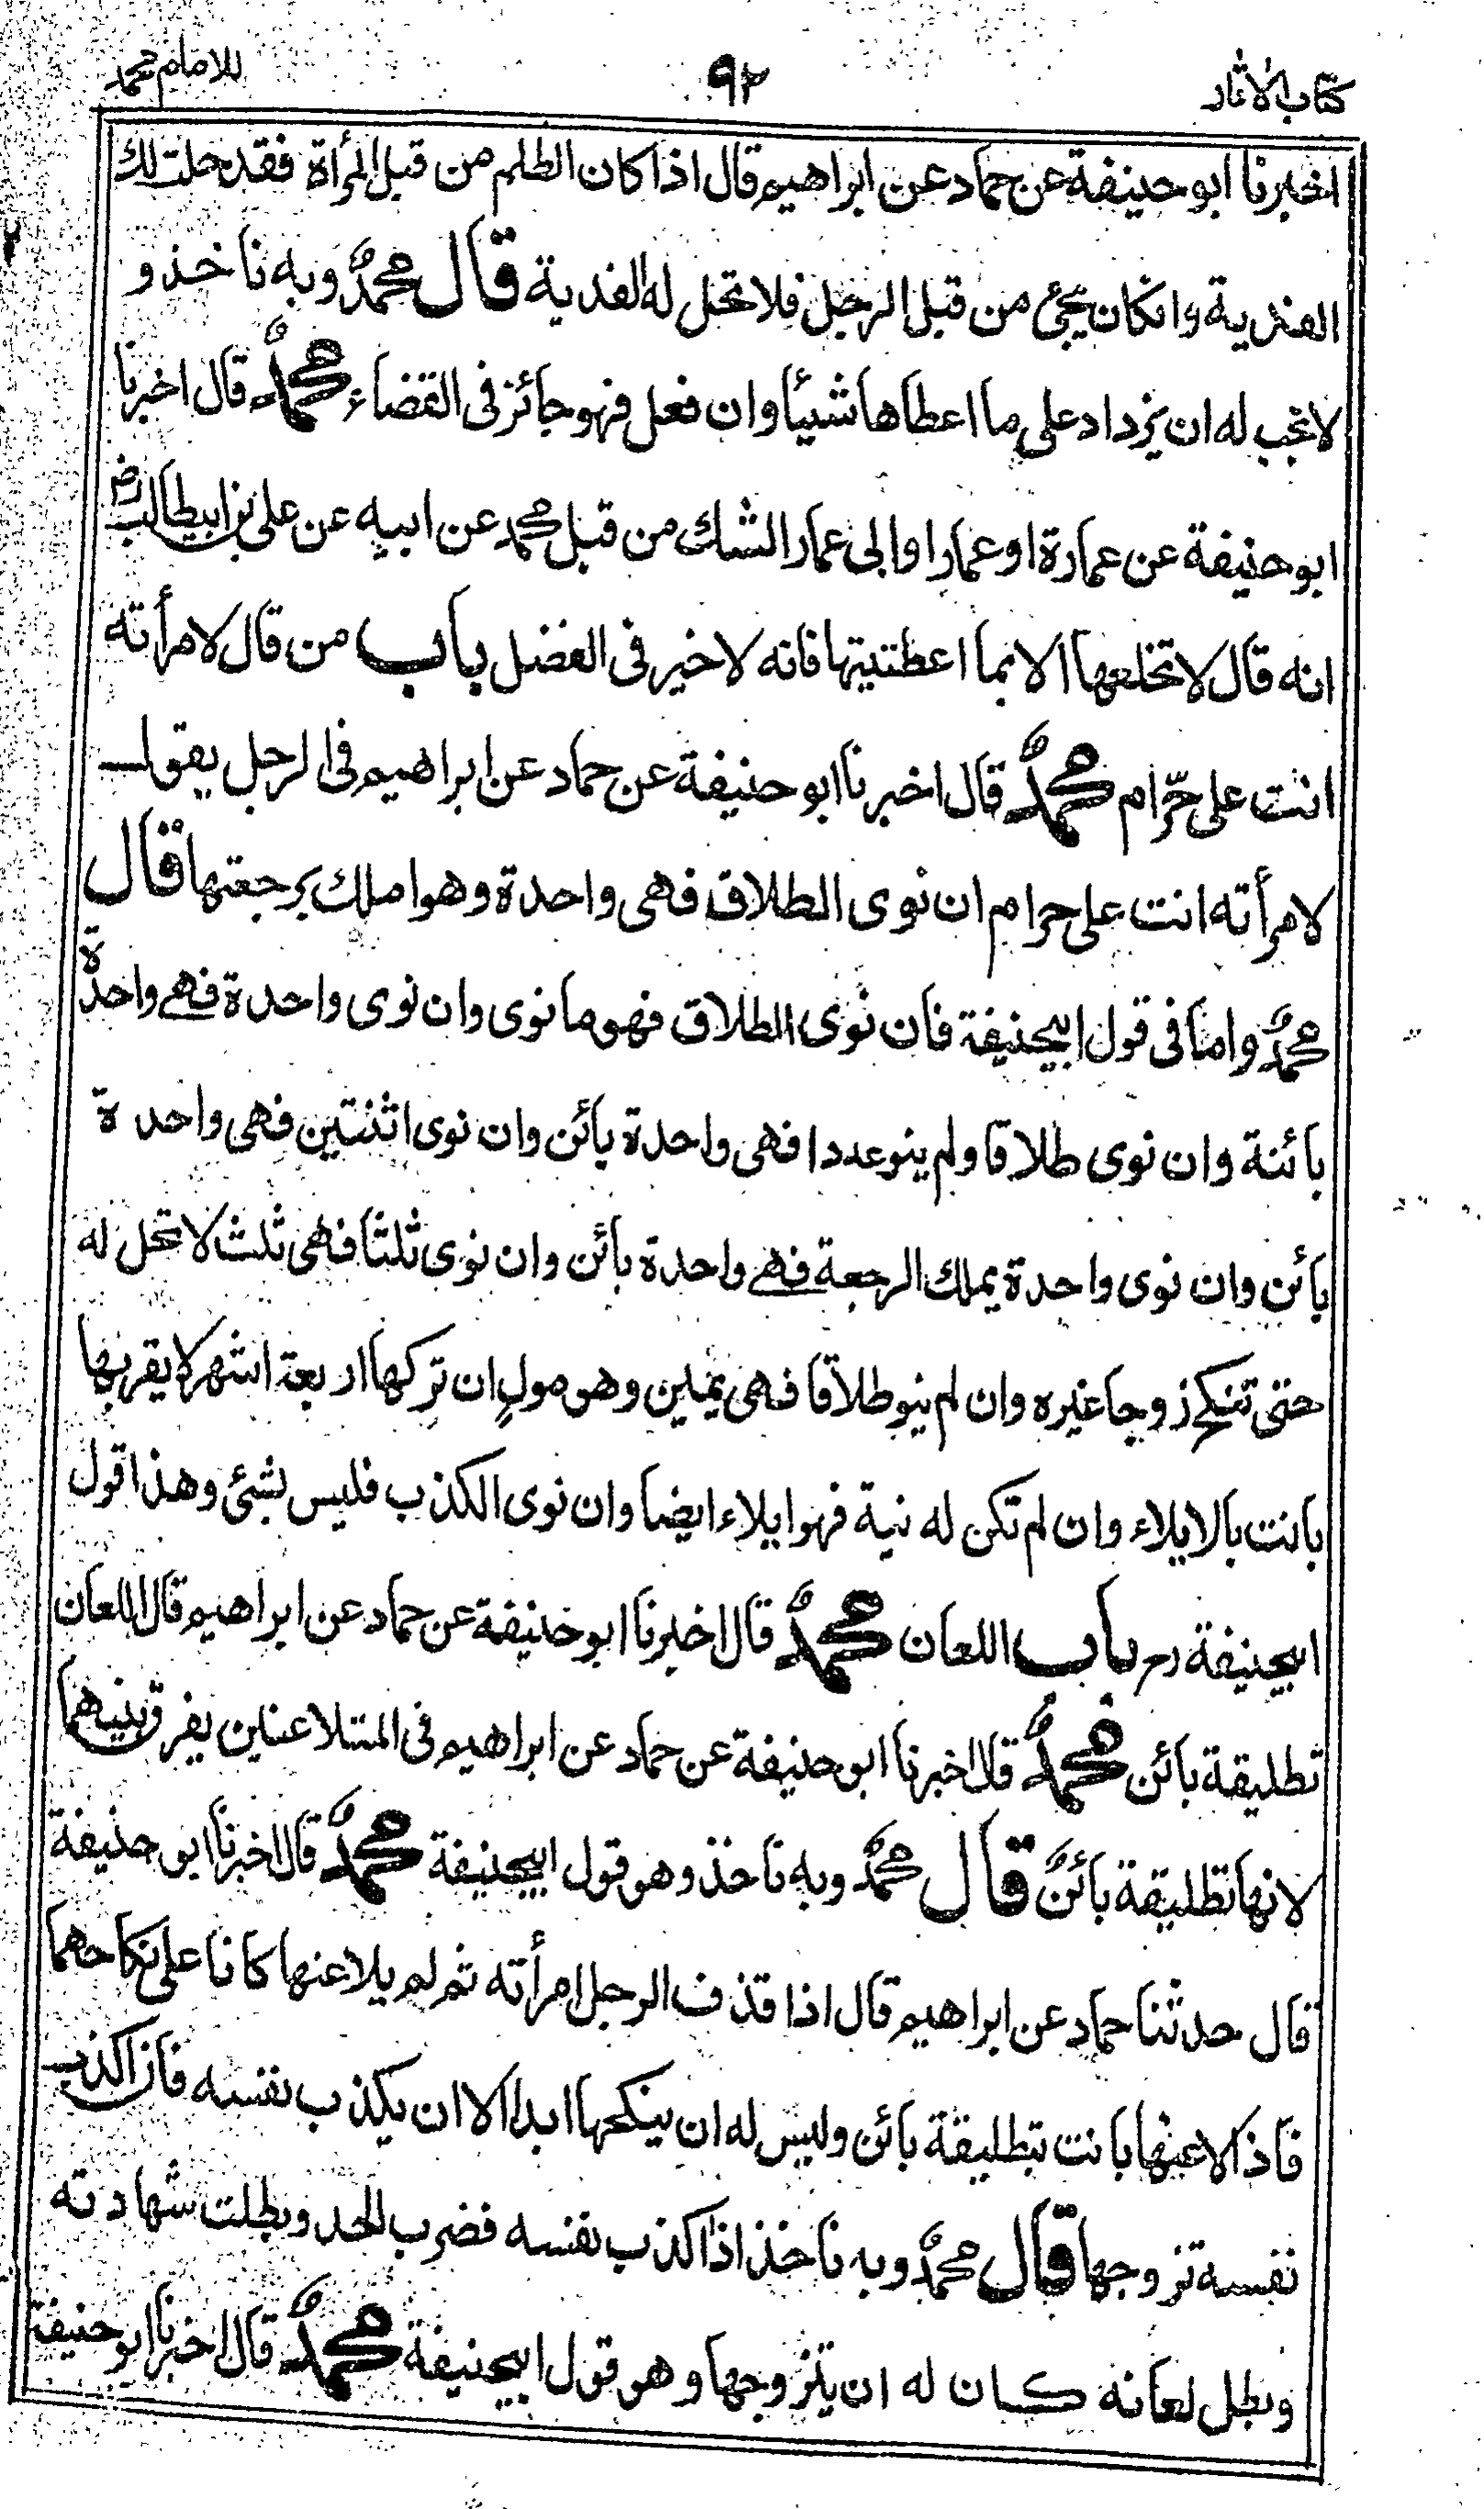 كتاب الاثار ٩٢ للامام محمد
اخبرنا ابو حنيفة عن حماد عن ابراهيم قال اذا كان الظلم من قبل المرأة فقد حلت لك
الفدية وانكان يجئ من قبل الرجل فلا تحل له الفدية قال محمدؒ وبه ناخذ و
لا نحب له ان يزداد على ما اعطاها شيئا وان فعل فهو جائز فى القضاء محمدؒ قال اخبرنا
ابو حنيفة عن عمارة او عمار او ابى عمار الشك من قبل محمد عن ابيه عن على بن ابيطالبؓ
انه قال لا تخلعها الا بما اعطتيتها فانه لا خير فى الفضل باب من قال لامرأته
انت على حرام محمدؒ قال اخبرنا ابو حنيفة عن حماد عن ابراهيم فى الرجل يقول
لامرأته انت على حرام ان نوى الطلاق فهى واحدة وهو املك برجعتها قال
محمدؒ واما فى قول ابيحنيفة فان نوى الطلاق فهو ما نوى وان نوى واحدة فهى واحدة
بائنة وان نوى طلاقا ولم ينو عددا فهى واحدة بائن وان نوى اثنتين فهى واحدة
بائن وان نوى واحدة يملك الرجعة فهى واحدة بائن وان نوى ثلثا فهى ثلث لا تحل له
حتى تنكح زوجا غيره وان لم ينو طلاقا فهى يمين وهو مولٍ ان تركها اربعة اشهر لا يقربها
بانت بالايلاء وان لم تكن له نية فهو ايلاء ايضا وان نوى الكذب فليس بشئ وهذا قول
ابيحنيفة رح باب اللعان محمدؒ قال اخبرنا ابو حنيفة عن حماد عن ابراهيم قال اللعان
تطليقة بائن محمدؒ قال اخبرنا ابو حنيفة عن حماد عن ابراهيم فى المتلاعنين يفرق بينهما
لانها تطليقة بائن قال محمدؒ وبه ناخذ وهو قول ابيحنيفة محمدؒ قال اخبرنا ابو حنيفة
قال حدثنا حماد عن ابراهيم قال اذا قذف الرجل امرأته ثم لم يلاعنها كانا على نكاحهما
فاذا لاعنها بانت بتطليقة بائن وليس له ان ينكحها ابدا الا ان يكذب نفسه فان اكذب
نفسه تزوجها قال محمدؒ وبه ناخذ اذا اكذب نفسه فضرب الحد وبطلت شهادته
وبطل لعانه كان له ان يتزوجها وهو قول ابيحنيفة محمدؒ قال اخبرنا ابو حنيفة